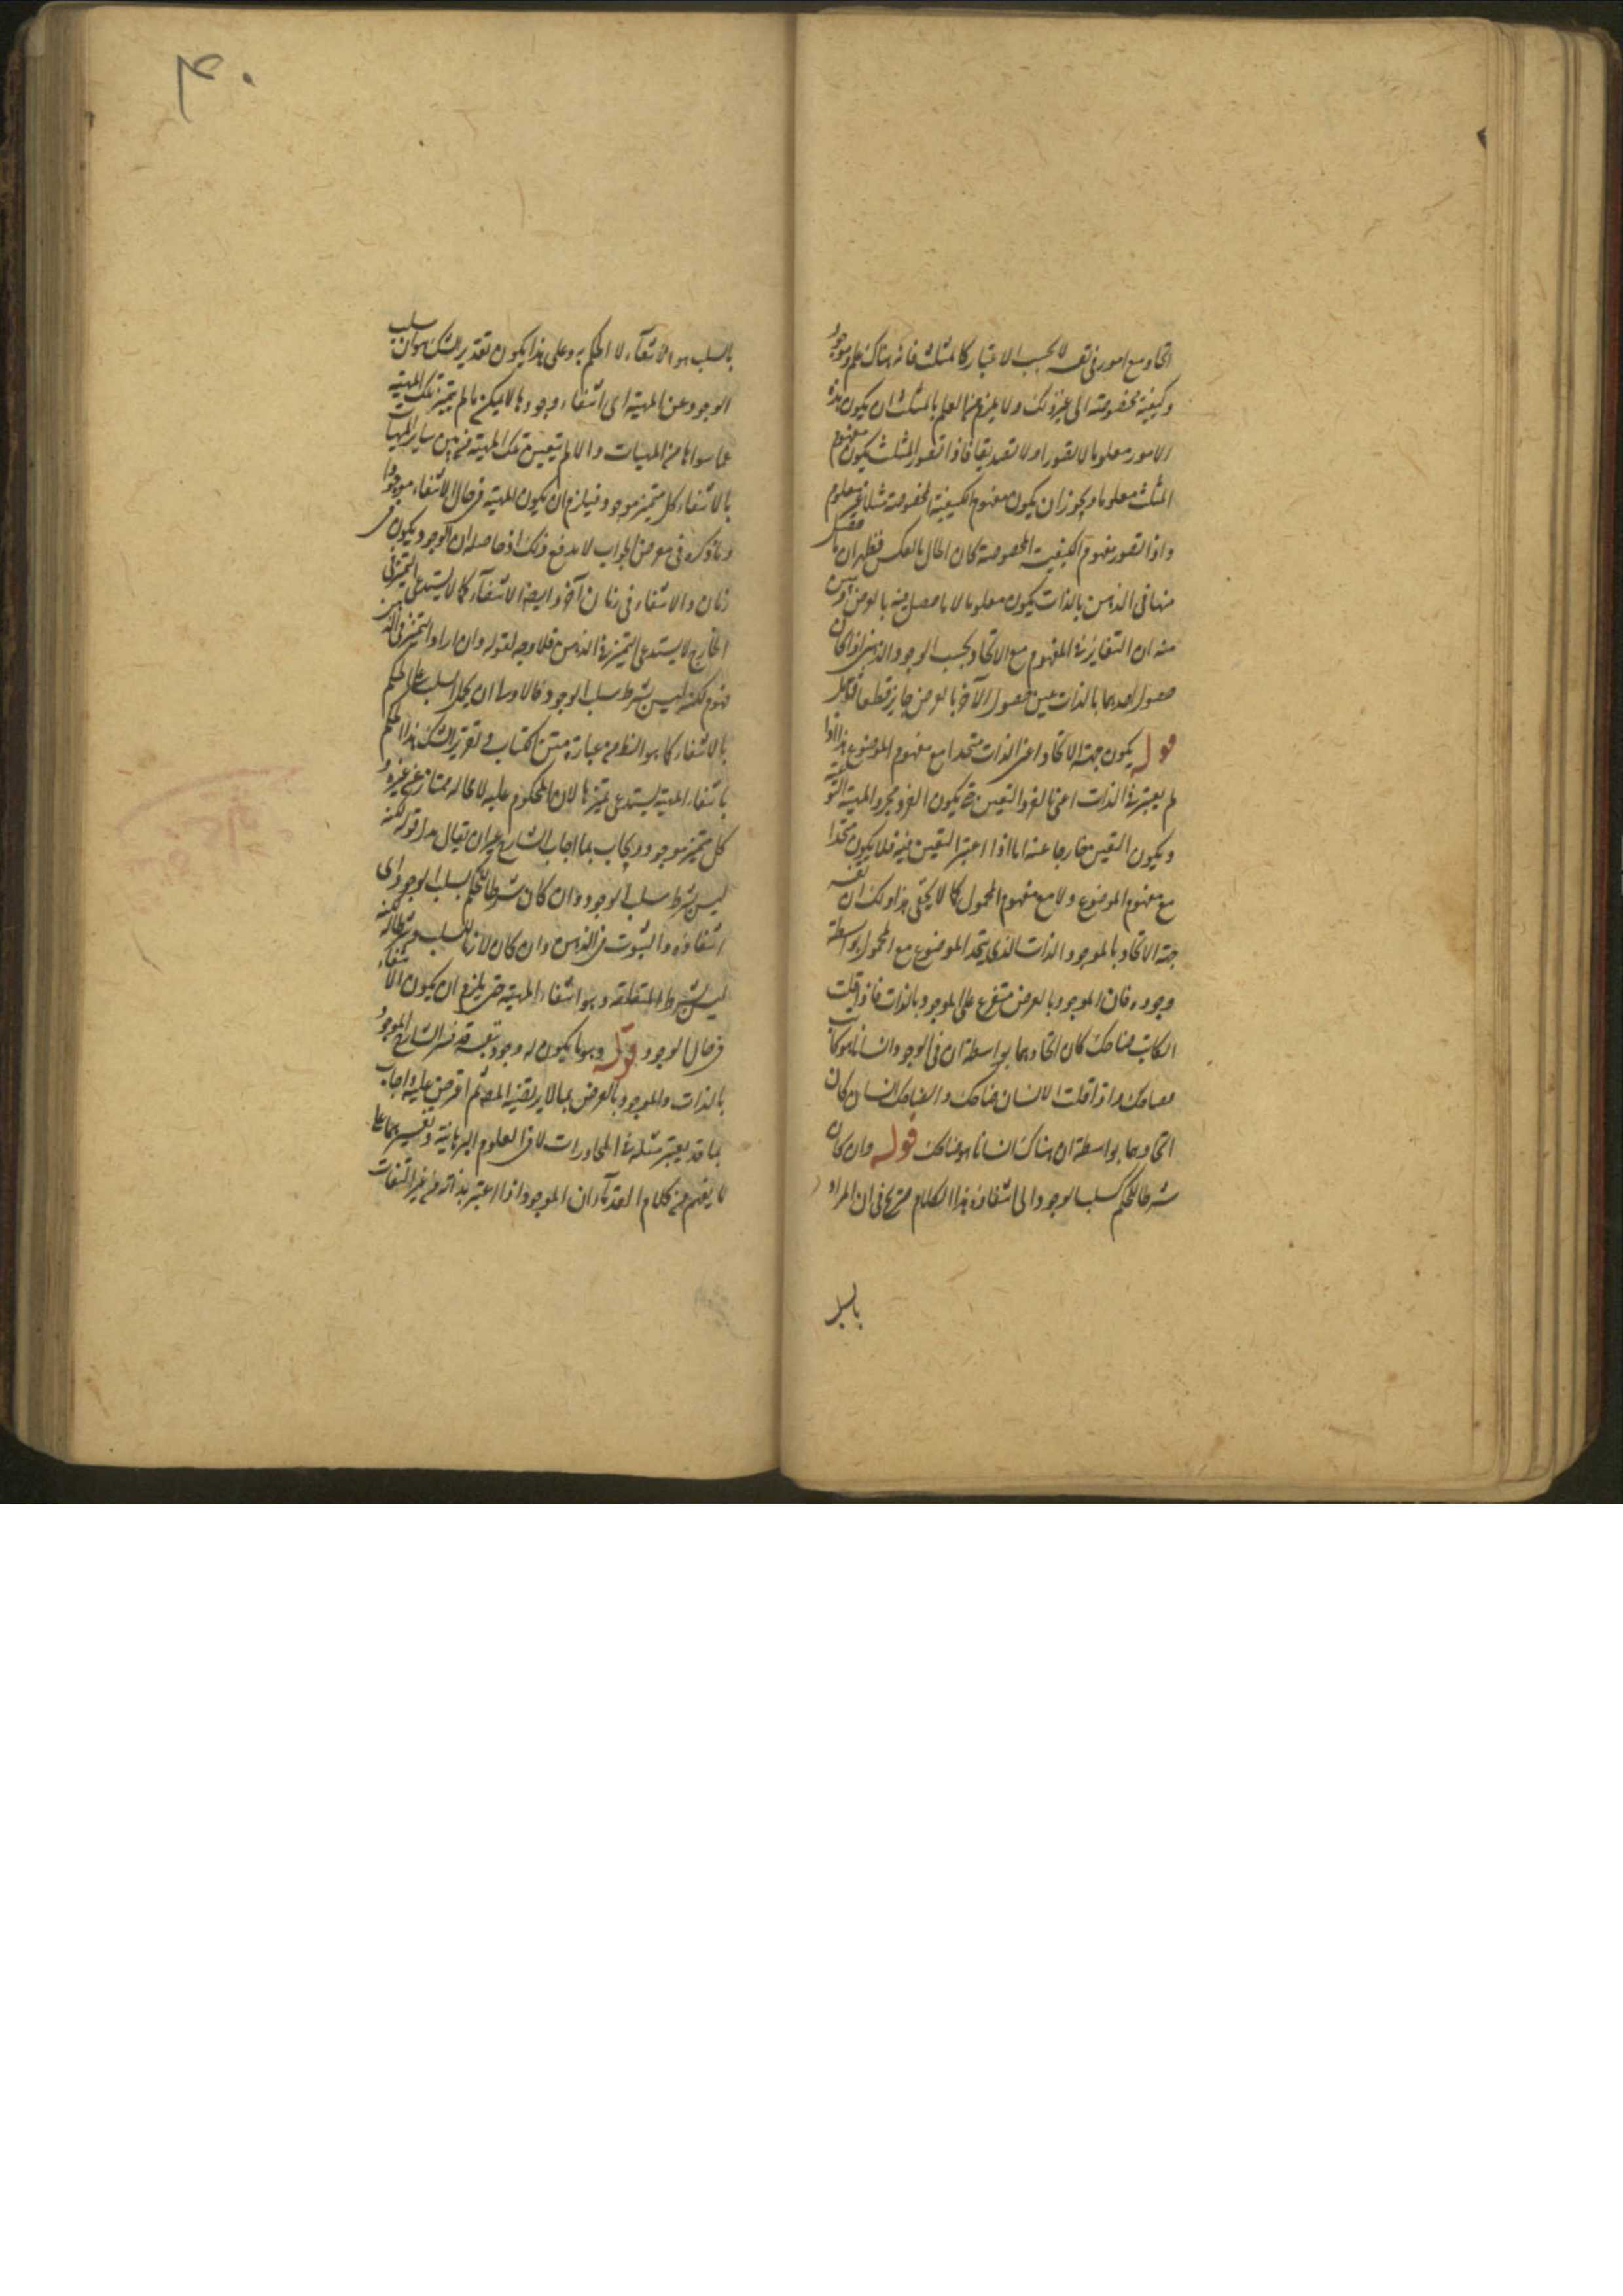 اتحاد مع امور فى نفسه لا بحسب الاعتبار كالمثلث فانه هناك علم وموجود
وكيفية مخصوصة الى غير ذلك ولا يلزم من العلم بالمثلث ان يكون هذه
الامور معلوما لا تصورا ولا تصديقا فاذا تصور المثلث يكون مفهوم
المثلث معلوما ويجوز ان يكون مفهوم الكيفية المخصوصة مثلا غير معلوم
واذا تصور مفهوم الكيفية المخصوصة كان الحال بالعكس فظهر ان ما حصل
منها فى الذهن بالذات يكون معلوما لا ما حصل فيه بالعرض وتبين
منه ان التغاير فى المفهوم مع الاتحاد بحسب الوجود الذهنى اذا كان
حصول احدهما بالذات عين حصول الآخر بالعرض جايز قطعا فتأمل
قوله يكون جهة الاتحاد اعنى الذات متحدا مع مفهوم الموضوع هذا اذا
لم يعتبر فى الذات اعنى الفرد التعين حتى يكون الفرد مجرد المهية النوعية
ويكون التعين خارجا عنه اما اذا اعتبر التعين فيه فلا يكون متحدا
مع مفهوم الموضوع ولا مع مفهوم المحمول كما لا يخفى هذا ولك ان تفسر
جهة الاتحاد بالموجود الذات الذى يتحد الموضوع مع المحمول بواسطة
وجوده فان الموجود بالعرض متفرع على الموجود بالذات فاذا قلت
الكاتب ضاحك كان اتحادهما بواسطة ان فى الوجود انسانا هو كاتب
ضاحك واذا قلت الانسان ضاحك والضاحك انسان كان
اتحادهما بواسطة ان هناك انسانا هو ضاحك قوله وان كان
شرطا للحكم بسلب الوجود اى انتفاؤه هذا الكلام صريح فى ان المراد
بالسلب
٤٠
بالسلب هو الانتفاء لا الحكم به وعلى هذا يكون تقدير الشك هو ان سلب
الوجود عن المهية اى انتفاء وجودها لا يمكن ما لم يتميز تلك المهية
عما سواها من المهيات والا لم يتعين تلك المهية من بين ساير المهيات
بالانتفاء وكل متميز موجود فيلزم ان يكون المهية فى حال الانتفاء موجودا
وما ذكره فى معرض الجواب لا يدفع ذلك اذ حاصله ان الوجود يكون فى
زمان والانتفاء فى زمان آخر وايضا الانتفاء كما لا يستدعى التميز فى
الخارج لا يستدعى التميز فى الذهن فلا وجه لقوله وان اراد التميز فى الذهن
فهو لكنه ليس بشرط سلب الوجود فالاولى ان يحمل السلب على الحكم
بالانتفاء كما هو الظ من عبارة متن الكتاب وتقرير الشك هذا الحكم
بانتفاء المهية يستدعى تميزها لان المحكوم عليه لا محالة ممتاز عن غيره و
كل متميز موجود ويجاب بما اجاب الشارح غير ان يقال بدل قوله لكنه
ليس بشرط سلب الوجود وان كان شرطا للحكم بسلب الوجود اى
انتفاؤه والثبوت فى الذهن وان كان لازما للسلب وشرطا له لكنه
ليس شرطا لمتعلقه وهو انتفاء المهية حتى يلزم ان يكون الانتفاء
فى حال الوجود قوله وهو ما يكون له وجود بنفسه قد فسر الشارح الموجود
بالذات والموجود بالعرض بما لا يرتضيه المص ثم اعترض عليه واجاب
بما قد يعتبر مثله فى المحاورات لا فى العلوم البرهانية وتفسيرهما على
ما يفهم من كلام القدماء ان الموجود اذا اعتبر بذاته من غير التفات